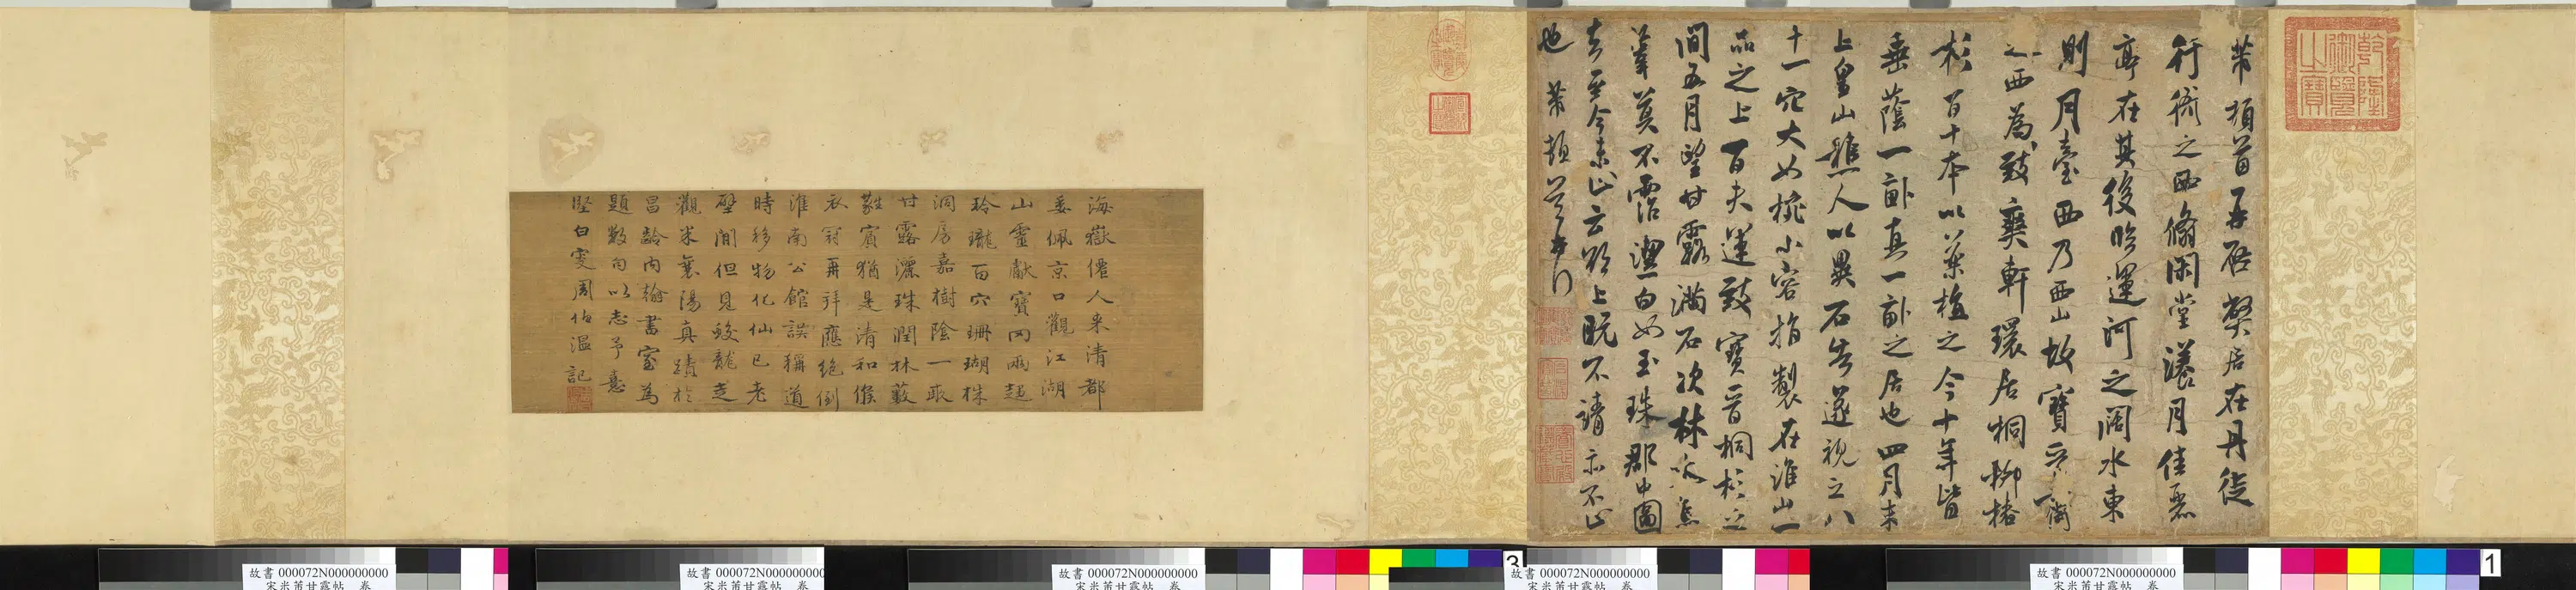 乾隆
御覽
之寶
芾頓首再啓弊居在丹徒
行衙之西翛閑堂漾月佳麗
亭在其後臨運河之闊水東
則月臺西乃西山故寶晉齋
之西為致爽軒環居桐柳椿
杉百十本以藥植之今十年皆
垂蔭一畝真一畝之居也四月末
上皇山樵人以異石告遂視之八
十一穴大如椀小容指製在淮山一
品之上百夫運致寶晉桐杉之
間五月望甘露滿石次林木焦
葦莫不霑潔白如玉珠郡中圖
去至今未止云欲上既不請亦不止
也芾頓首再行
海嶽僊人來清都
委佩京口觀江湖
山靈獻寶罔兩趨
玲瓏百穴珊瑚株
洞房嘉樹陰一畝
甘露灑珠潤林藪
斁賓猶是清和候
衣冠再拜應絕倒
淮南公館誤稱道
時移物化仙已老
壁間但見蛟龍走
觀米襄陽真蹟於
昌齡內翰書室為
題數句以志予意
堅白叟周伯溫記
故書 000072N000000000
宋米芾甘露帖 卷
故書 000072N000000000
宋米芾甘露帖 卷
故書 000072N000000000
宋米芾甘露帖 卷
3
故書 000072N000000000
宋米芾甘露帖 卷
故書 000072N000000000
宋米芾甘露帖 卷
1